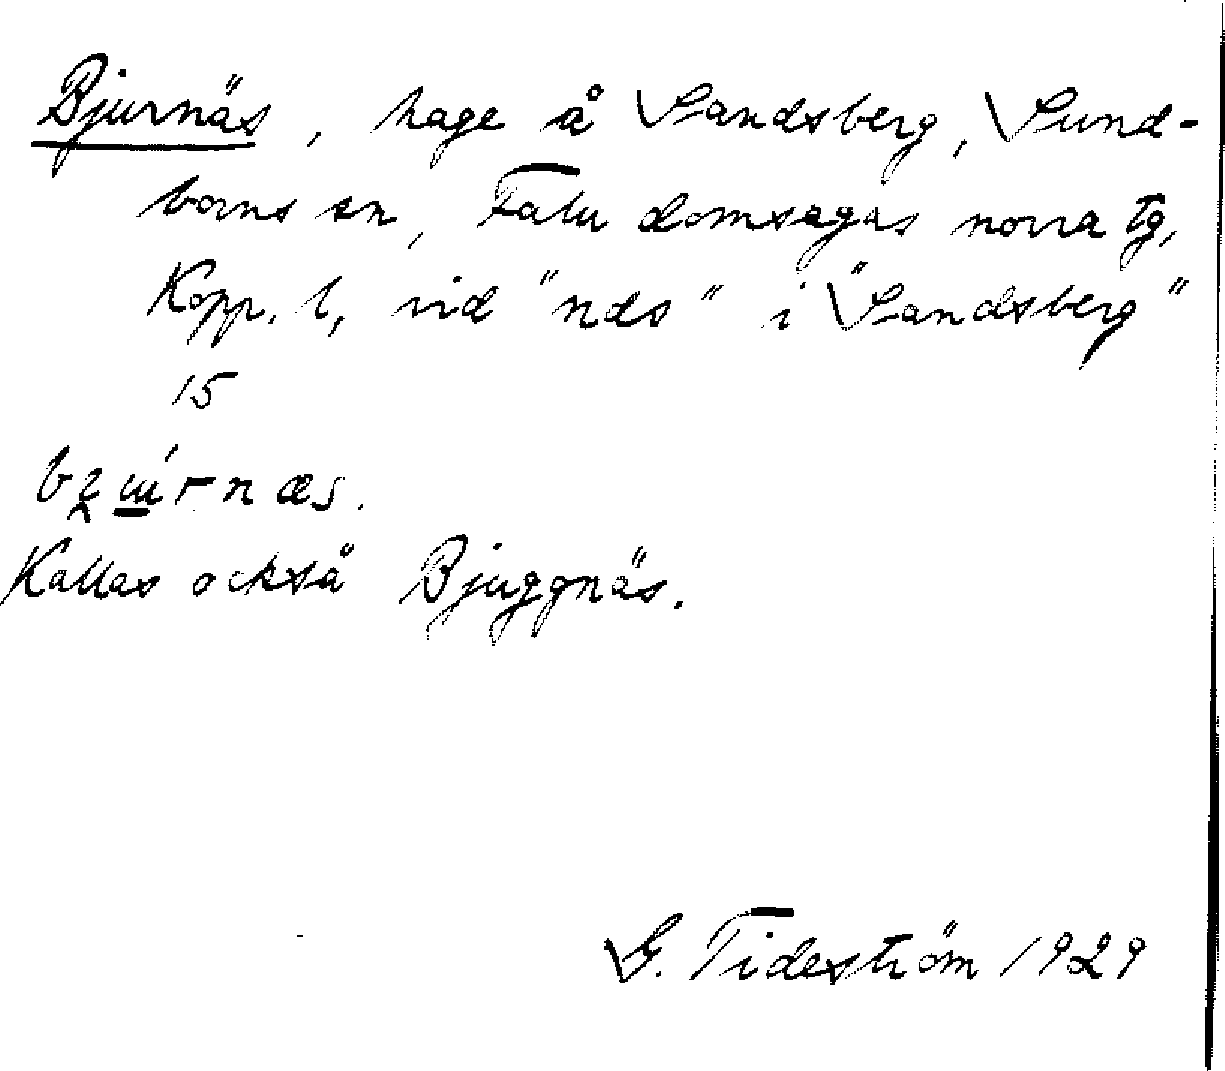 Bjurnäs, hage å Sandsberg, Sund-
borns sn, Falu domsagas norra tg,
Kopp. l, vid "näs" i "Sandsberg"
15
Kallas också Bjuggnäs.
G. Tideström 1929